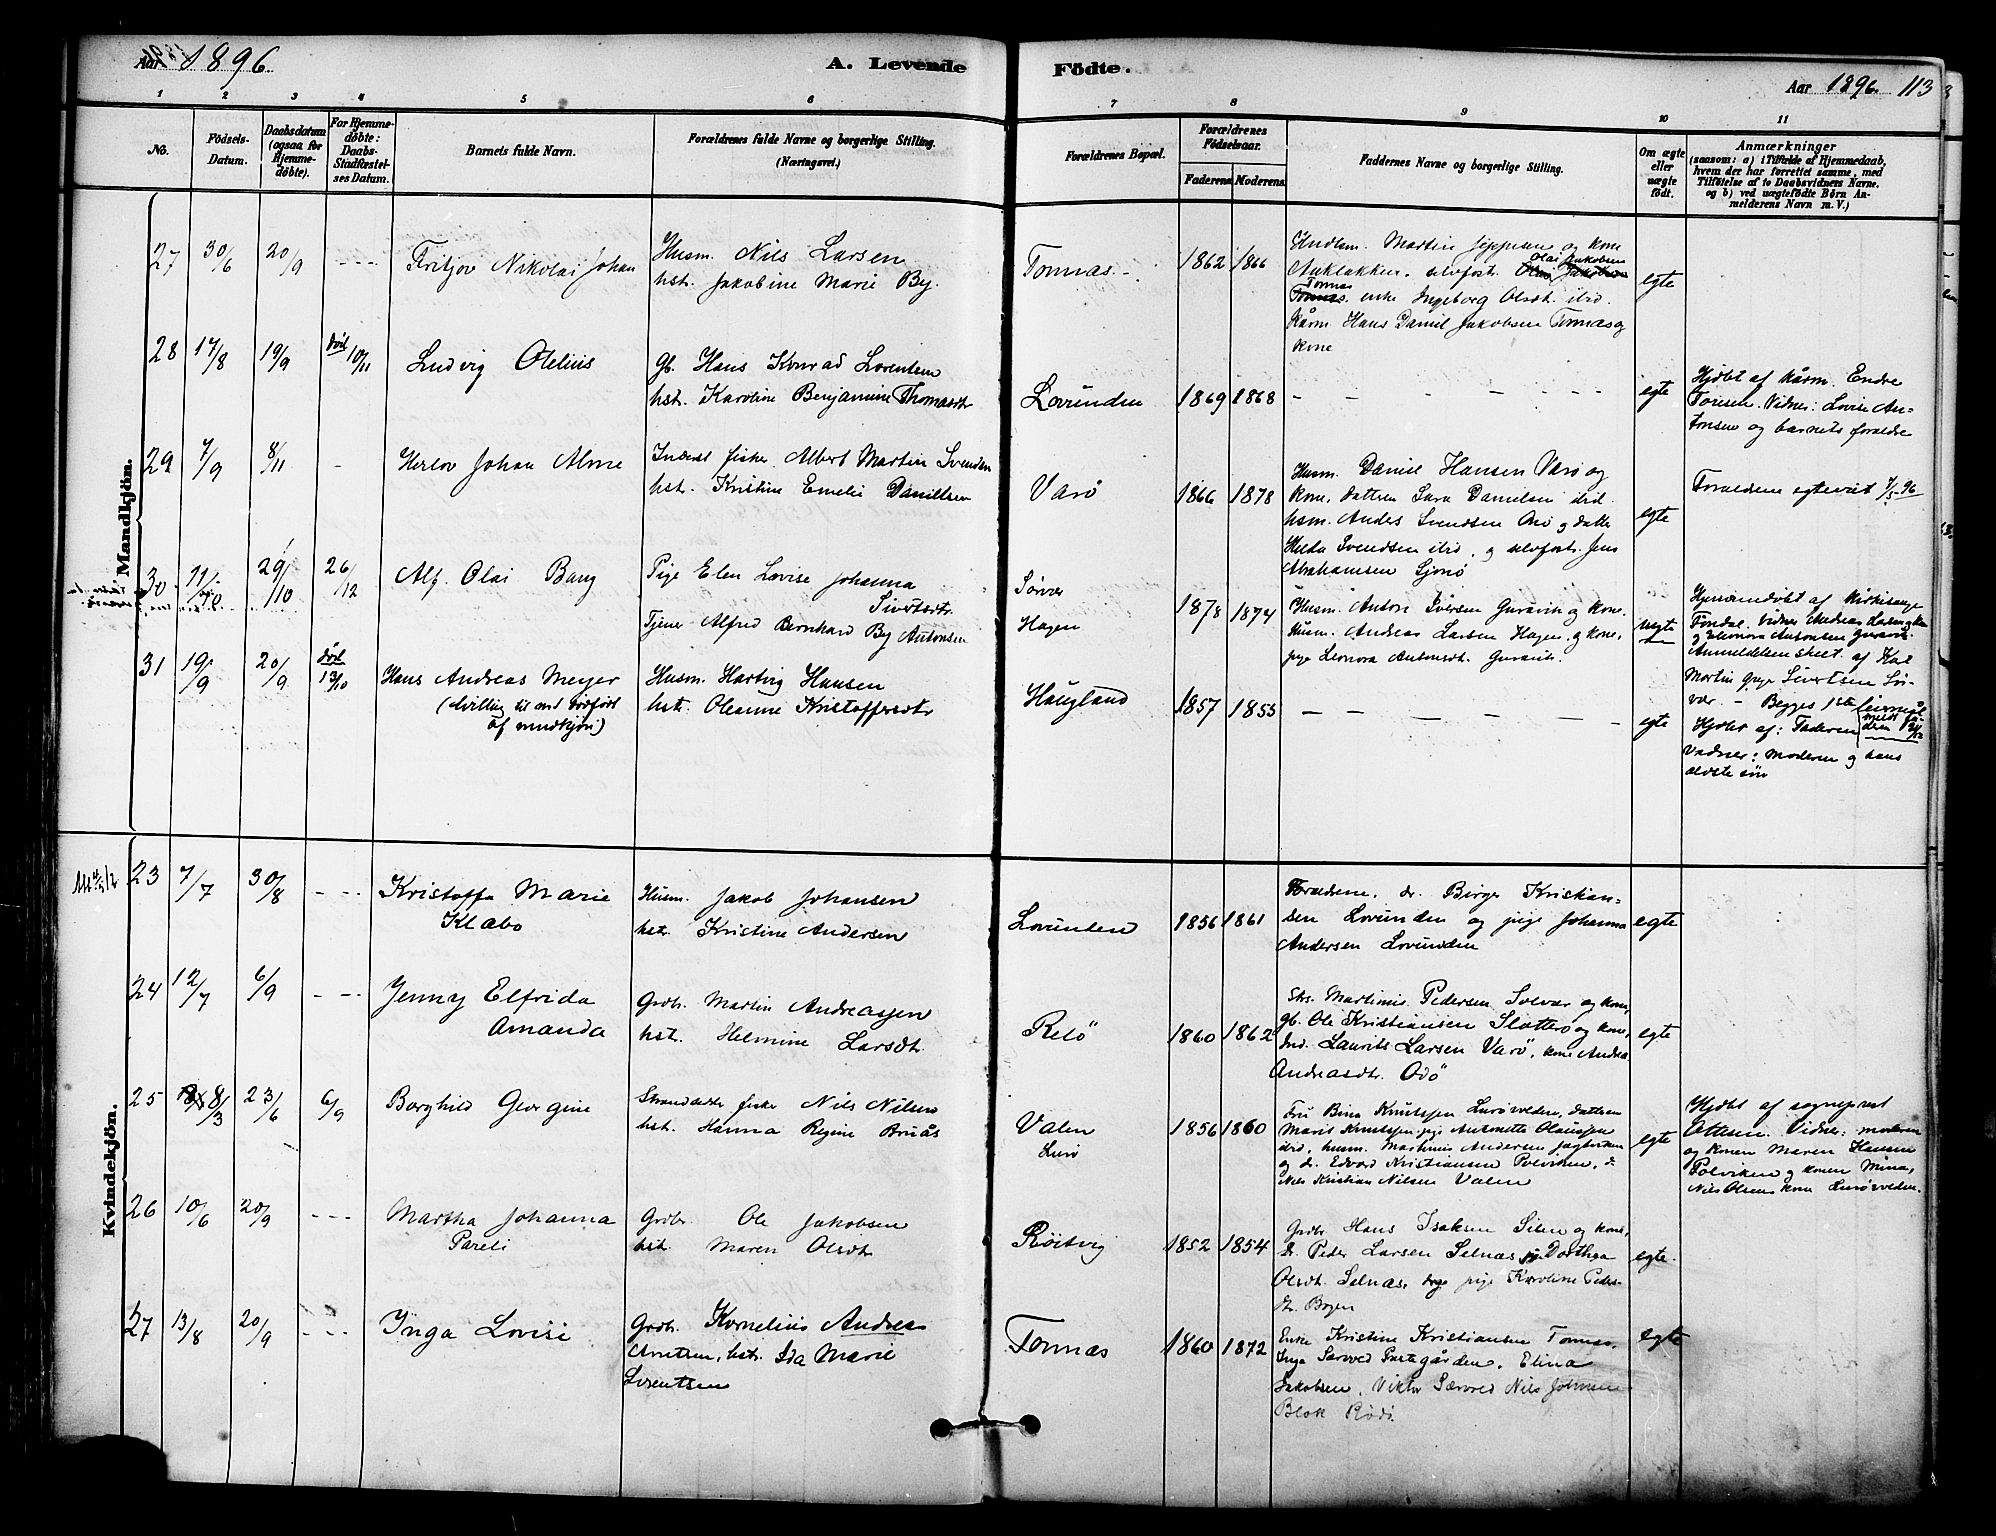 Aar 1896
A. Levende
Födte.
Aar 1896. 113
1 2 3 4 5 6 7 8 9 10 11
No.
Födsels-
Datum.
Daabsdatum
(ogsaa for
Hjemme-
döbte).
For Hjemme-
döbte:
Daabs-
Stadfæstel-
ses Datum.
Barnets fulde Navn.
Forældrenes fulde Navne og borgerlige Stilling.
(Næringsvei.)
Forældrenes Bopæl.
Forældrenes
Födselsaar.
Faderens Moderens
Faddernes Navne og borgerlige Stilling.
Om ægte
eller
uægte
födt.
Anmærkninger
(saasom: a) i Tilfælde af Hjemmedaab,
hvem der har forrettet samme, med
Tilföielse af to Daabsvidners Navne,
og b) ved uægtefödte Börn An-
melderens Navn m. V.)
Mandkjön.
27 30/6 20/9 - - -
Fritjov Nikolai Johan
Husm. Nils Larsen
hstr. Jakobine Marie By.
Tonnas
1862 1866
Martin Jeppesen og kone
Auklakken, selvfost. Olai Jakobsen
Tonnas enke Ingeborg Olsdt. ibid.
Kårm Hans Daniel Jakobsen Tonnas og
kone
egte
28 17/8 19/9 död 10/11
Ludvig Olelius
gb. Hans Konrad Lorentsen
hstr. Karoline Benjamine Thomasdt
Lovunden
1869 1868
- - - - - -
egte
Hjdbt af kårm. Endre
Toresen. Vidner: Lovise An-
tonsen og barnets forældre
29 7/9 8/11 -
Herlov Johan Alme
Inderst fisker Albert Martin Svendsen
hstr. Kristine Emelie DaniElsen
Varö
1866 1878
Husm. Daniel Hansen Varö og
kone, datteren Sara Danielsen ibid.
hsm. Anders Svendsen Onö og datte
Hilda Svendsen ibid, og selvfost. Jens
Abrahamsen Sjonö
egte
Foreldrene egteviet 7/5-96
30 11/10 29/10 26/12
Alf Olai Bang
Pige Elen Lovise Johanna
Sivertsdtr
Tjener Alfred Bernhard By Antonsen
Sörver
Hagen
1878 1874
Husm. Anton Iversen Guravik og kone,
Husm. Andreas Larsen Hagen og kone,
pige Leonora Antonsdt. Guravik.
uegte
Hjemmedöbt af kirkesanger
Fondal. Vidner Andreas Larsen og kone
og Eleonora Antonsen Guravik.
Anmeldelsen skeet af Karl
Martin Sivertsen Sör-
vær. - Begges 1ste leiermål
31 19/9 20/9 död 13/10
Hans Andreas Meyer
(tvilling til ent dödfödt
af mandkjön)
Husm. Hartvig Hansen
hstr. Oleanne Kristoffersdtr
Haugland
1857 1855
- - - - - -
egte
Hjdbt af: Faderen
Vidner: Moderen og hans
ældste sön
Kvindekjön.
23 7/7 30/8 - - -
Kristoffa Marie
Klæbo
Husm. Jakob Johansen
hstr. Kristine Andersen
Lovunden
1856 1861
Foreldrene, dr. Birger Kristian-
sen Lovunden og pige Johanna
Andersen Lovunden
egte
24 12/7 6/9 - - -
Jenny Elfrida
Amanda
Grdbr. Martin Andreassen
hstr. Helmine Larsdt.
Relö
1860 1862
Str. Martinus Pedersen Solvær og kone,
gb. Ole Kristiansen Slotterö og kone,
Ind. Laurits Larsen Varö, kone Andrea
Andreasdtr. Odö
egte
25 8/3 23/6 6/9
Borghild Georgine
Strandsidder fisker Nils Nilsen
hstr. Hanna Regine Bruås
Valen
Lurö
1856 1860
Fru Bina Knutssen Luröveden, datteren
Marit Knutssen, pige Antonette Olaussen
ibid, husm. Martinus Andersen
og dr. Edvard Kristiansen Polviken, d
Nils Kristian Nilsen Valen
egte
Hjdbt af sognepræst
Ottesen. Vidner: moderen
og konen Maren Hansen
Polviken og konen Mina,
Nils Olsens kone Luröveden.
26 10/6 20/9 - - -
Martha Johanna
Pareli
Grdbr Ole Jakobsen
hst. Maren Olsdtr
Röitvig
1852 1854
Grdbr Hans Isaksen Silen og kone,
dr. Peder Larsen Selnæs, Dorthea
Olsdt. Selnæs, pige Karoline Peders-
dtr. Bogen
egte.
27 13/8 20/9 - - -
Inga Lovise
Grdbr. Kornelius Andreas
Arntsen, hstr. Ida Marie
Lorentsen
Tonnas
1860 1872
Enke Kristine Kristiansen Tonnas,
Inga Prestegården, Elina
Jakobsen, Viktor Nils Johan
Blok Rödö.
egte